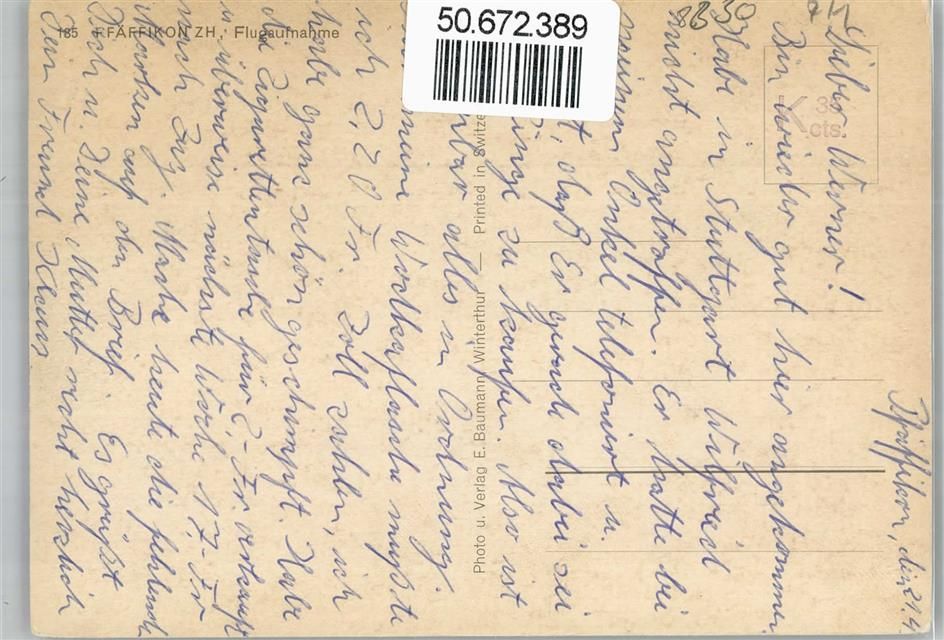 50.672.389
8830
185 PFÄFFIKON ZH, Flugaufnahme
35
cts.
Photo u. Verlag E. Baumann, Winterthur — Printed in Switze
Pfäffikon, den 21.4
Lieber Werner!
Bin wieder gut hier angekommen.
Habe in Stuttgart Wilfried
nicht angetroffen. Er hatte bei
meinem Onkel telefoniert u.
t, daß Er gerade dabei sei
inge zu kaufen. Also ist
bar alles in Ordnung.
meine Wodkaflasche mußte
ich 2,20 Fr. Zoll zahlen, ich
habe ganz schön geschimpft. Habe
die Zigarettentasche für 2,- Fr. verkauft
u. überweise nächste Woche 17,- Fr
nach Zug. Mache heute die fehlende
Marken auf den Brief. Es grüßt
Dich u. Deine Mutter recht herzlich
Dein Freund Klaus